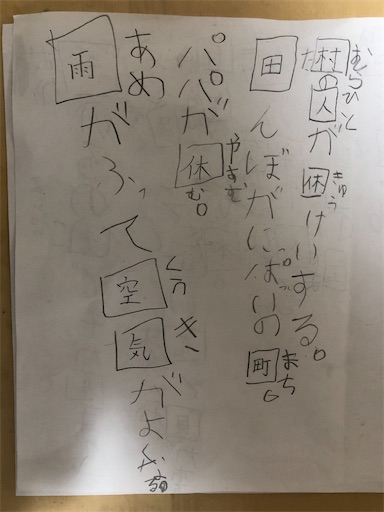 村の人が休けいする。
むら ひと きゅう
田んぼがいっぱいの町。
た まち
パパが休む。
やすむ
雨がふって空気がよ
あめ くう き